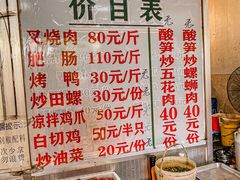 价目表
叉烧肉 80元/斤
肥肠 110元/斤
烤鸭 30元/份
炒田螺 30元/份
凉拌鸡爪 50元/斤
白切鸡 50元/半只
炒油菜 20元/份
酸笋炒五花肉40元/份
酸笋炒螺蛳肉40元/份